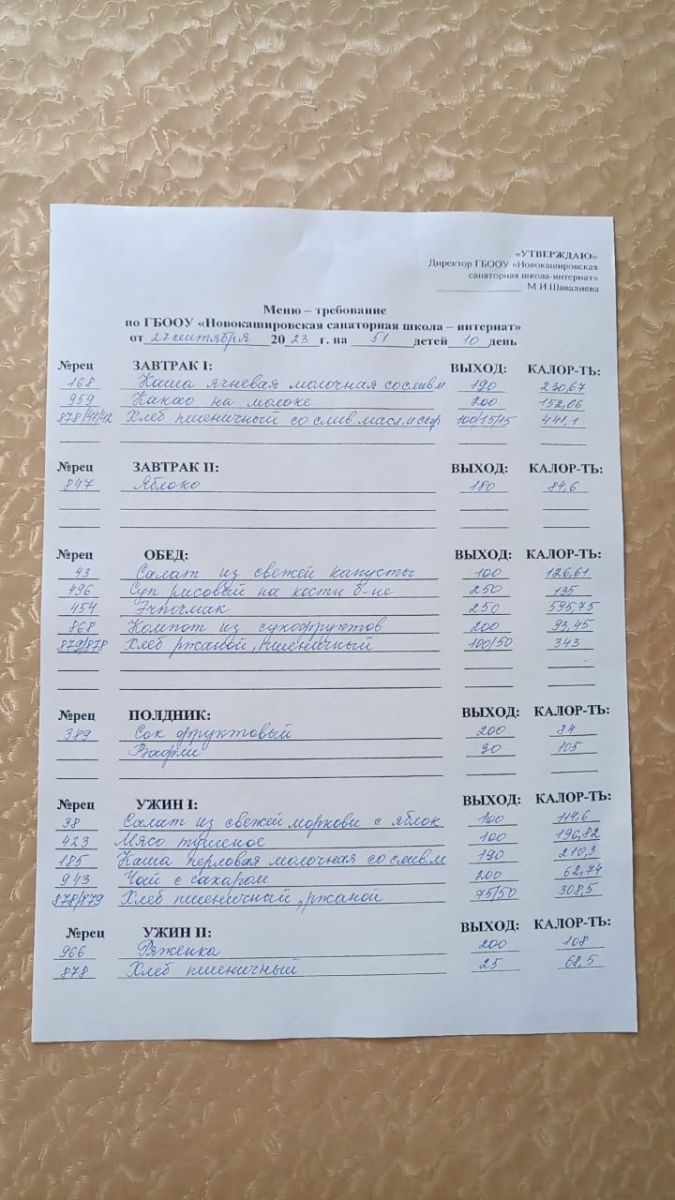 «УТВЕРЖДАЮ»
Директор ГБООУ «Новокашировская
санаторная школа-интернат»
М.И.Шавалиева
Меню – требование
по ГБООУ «Новокашировская санаторная школа – интернат»
от 27 сентября 2023 г. на 51 детей 10 день
№рец ЗАВТРАК I: ВЫХОД: КАЛОР-ТЬ:
168 Каша ячневая молочная со слив м 190 230,67
959 Какао на молоке 200 152,06
878/41/42 Хлеб пшеничный со слив.маслм сыр 100/15/15 441,1
№рец ЗАВТРАК II: ВЫХОД: КАЛОР-ТЬ:
847 Яблоко 180 84,6
№рец ОБЕД: ВЫХОД: КАЛОР-ТЬ:
43 Салат из свежей капусты 100 126,61
496 Суп рисовый на кости б-не 250 135
454 Эчпочмак 250 595,75
868 Компот из сухофруктов 200 93,45
879/878 Хлеб ржаной, пшеничный 100/50 343
№рец ПОЛДНИК: ВЫХОД: КАЛОР-ТЬ:
389 Сок фруктовый 200 84
Вафли 30 105
№рец УЖИН I: ВЫХОД: КАЛОР-ТЬ:
38 Салат из свежей моркови с яблок 100 114,6
423 Мясо тушеное 100 196,82
185 Каша перловая молочная со слив.м 190 210,3
943 Чай с сахаром 200 62,74
878/879 Хлеб пшеничный, ржаной 75/50 308,5
№рец УЖИН II: ВЫХОД: КАЛОР-ТЬ:
966 Ряженка 200 108
878 Хлеб пшеничный 25 68,5